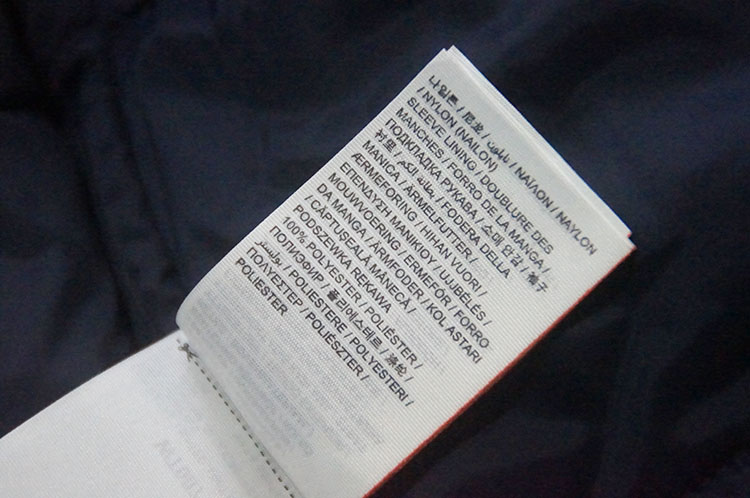 나일론 / 尼龙 / نايلون / ΝΑΪΛΟΝ / NAYLON
/ NYLON (NAILON)
SLEEVE LINING / DOUBLURE DES
MANCHES / FORRO DE LA MANGA /
ПОДКЛАДКА РУКАВА / 소매 안감 / 袖子
衬里 / بطانة الكم / FODERA DELLA
MANICA / ÄRMELFUTTER /
ÆRMEFORING / HIHAN VUORI /
ΕΠΕΝΔΥΣΗ ΜΑΝΙΚΙΟΥ / UJJBÉLÉS /
MOUWVOERING / ERMEFÔR / FORRO
DA MANGA / ÄRMFODER / KOL ASTARI
/ CĂPTUŞEALĂ MÂNECĂ /
PODSZEWKA RĘKAWA
100% POLYESTER / POLIÉSTER /
ПОЛИЭФИР / 폴리에스테르 / 涤纶 /
بوليستر / POLIESTERE / POLYESTERI /
ΠΟΛΥΕΣΤΕΡ / POLIÉSZTER /
POLIESTER